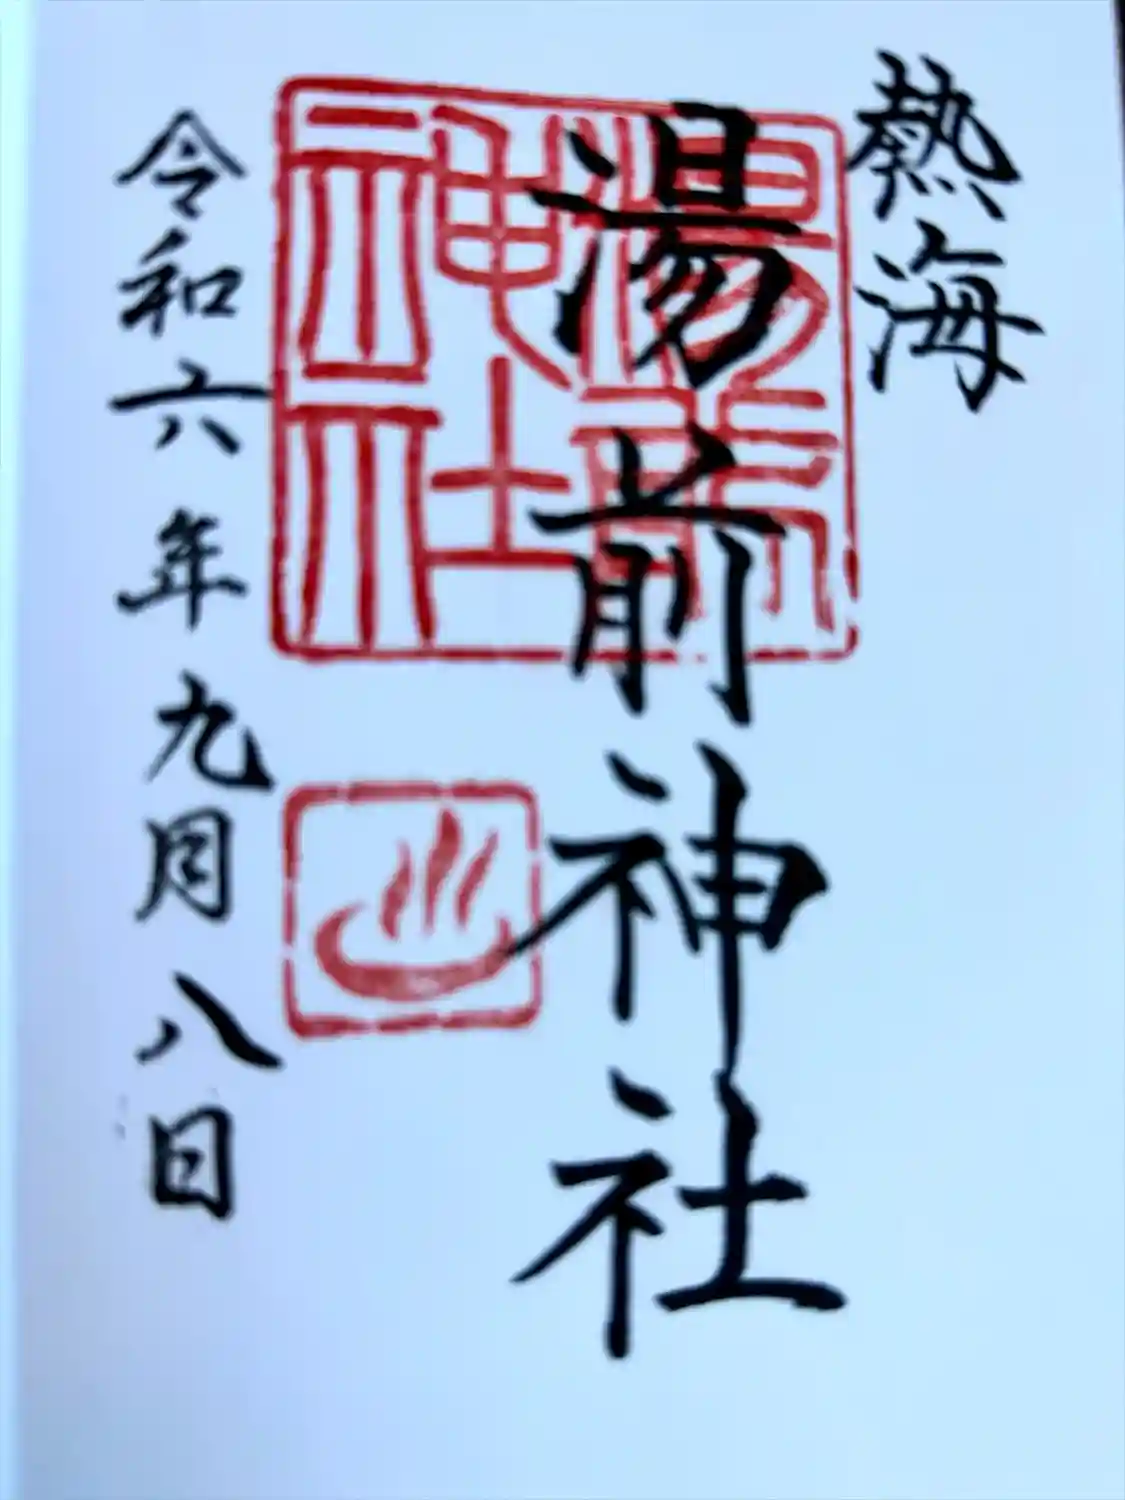 熱海
湯前神社
湯前神社
令和六年九月八日